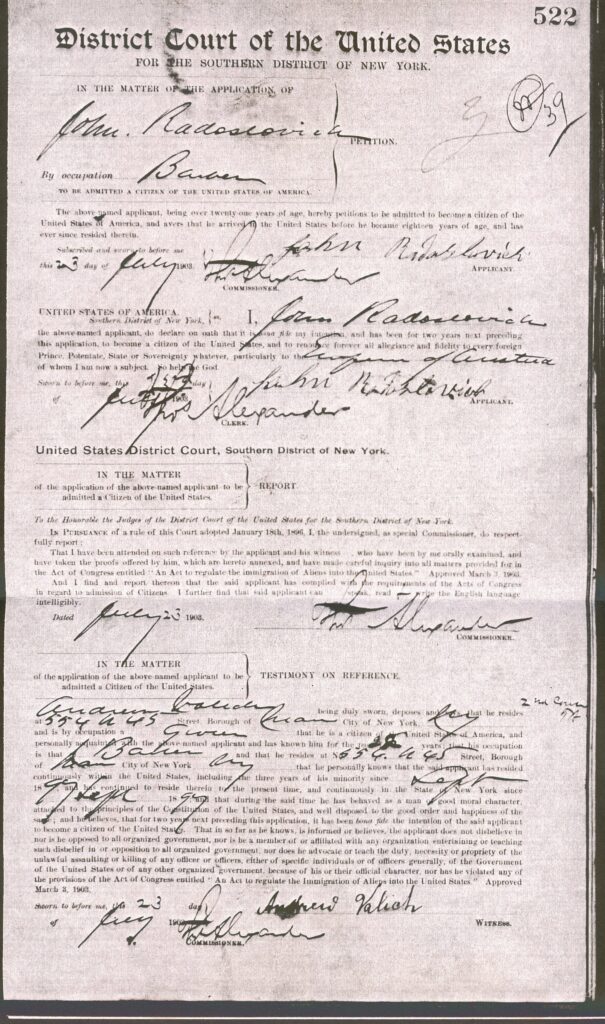 522
District Court of the United States
FOR THE SOUTHERN DISTRICT OF NEW YORK.
IN THE MATTER OF THE APPLICATION OF
John Radoslovich
PETITION.
By occupation Barber
TO BE ADMITTED A CITIZEN OF THE UNITED STATES OF AMERICA.
The above-named applicant, being over twenty-one years of age, hereby petitions to be admitted to become a citizen of the
United States of America, and avers that he arrived in the United States before he became eighteen years of age, and has
ever since resided therein.
Subscribed and sworn to before me
this 23 day of July 1903.
John Radoslovich
APPLICANT.
Alexander
COMMISSIONER.
UNITED STATES OF AMERICA,
Southern District of New York, ss.
I, John Radoslovich
the above-named applicant, do declare on oath that it is bona fide my intention, and has been for two years next preceding
this application, to become a citizen of the United States, and to renounce forever all allegiance and fidelity to every foreign
Prince, Potentate, State or Sovereignty whatever, particularly to the Emperor of Austria
of whom I am now a subject. So help me God.
Sworn to before me, this 23 day
of July 1903
APPLICANT.
Thos Alexander
CLERK.
United States District Court, Southern District of New York.
IN THE MATTER
of the application of the above-named applicant to be
admitted a Citizen of the United States.
REPORT.
To the Honorable the Judges of the District Court of the United States for the Southern District of New York.
IN PURSUANCE of a rule of this Court adopted January 18th, 1896, I, the undersigned, as special Commissioner, do respect-
fully report:
That I have been attended on such reference by the applicant and his witness , who have been by me orally examined, and
have taken the proofs offered by him, which are hereto annexed, and have made careful inquiry into all matters provided for in
the Act of Congress entitled "An Act to regulate the immigration of Aliens into the United States." Approved March 3, 1903.
And I find and report thereon that the said applicant has complied with the requirements of the Acts of Congress
in regard to admission of Citizens. I further find that said applicant can speak, read write the English language
intelligibly.
Dated July 23 1903.
Alexander
COMMISSIONER.
IN THE MATTER
of the application of the above-named applicant to be
admitted a Citizen of the United States.
TESTIMONY ON REFERENCE.
Andrew being duly sworn, deposes and says that he resides
at 554 W 45 Street, Borough of Man City of New York,
and is by occupation a that he is a citizen United States of America, and
personally acquainted with the above-named applicant and has known him for the years; that his occupation
is that of Barber and that he resides at W 45 Street, Borough
of Man City of New York that he personally knows that the said applicant has resided
continuously within the United States, including the three years of his minority since Sept
18 , and has continued to reside therein to the present time, and continuously in the State of New York since
Sept 18 ; that during said time he has behaved as a man of good moral character,
attached to the principles of the Constitution of the United States, and well disposed to the good order and happiness of the
same, and he believes, that for two years next preceding this application, it has been bona fide the intention of the said applicant
to become a citizen of the United States. That in so far as he knows, is informed or believes, the applicant does not disbelieve in
nor is he opposed to all organized government, nor is he a member of or affiliated with any organization entertaining or teaching
such disbelief in or opposition to all organized government, nor does he advocate or teach the duty, necessity or propriety of the
unlawful assaulting or killing of any officer or officers, either of specific individuals or of officers generally, of the Government
of the United States or of any other organized government, because of his or their official character, nor has he violated any of
the provisions of the Act of Congress entitled "An Act to regulate the Immigration of Aliens into the United States." Approved
March 3, 1903.
Sworn to before me, this 23 day
of July 1903
Andrew Valich
WITNESS.
Alexander
COMMISSIONER.